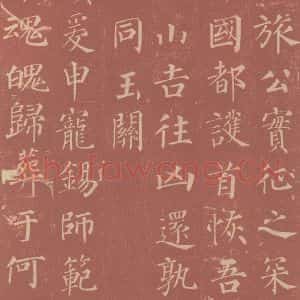 旅公實化之
國都護首恢吾
小吉往凶還孰
同玉關
爰申寵錫師範
魂魄歸葬于何
shufawang.CN